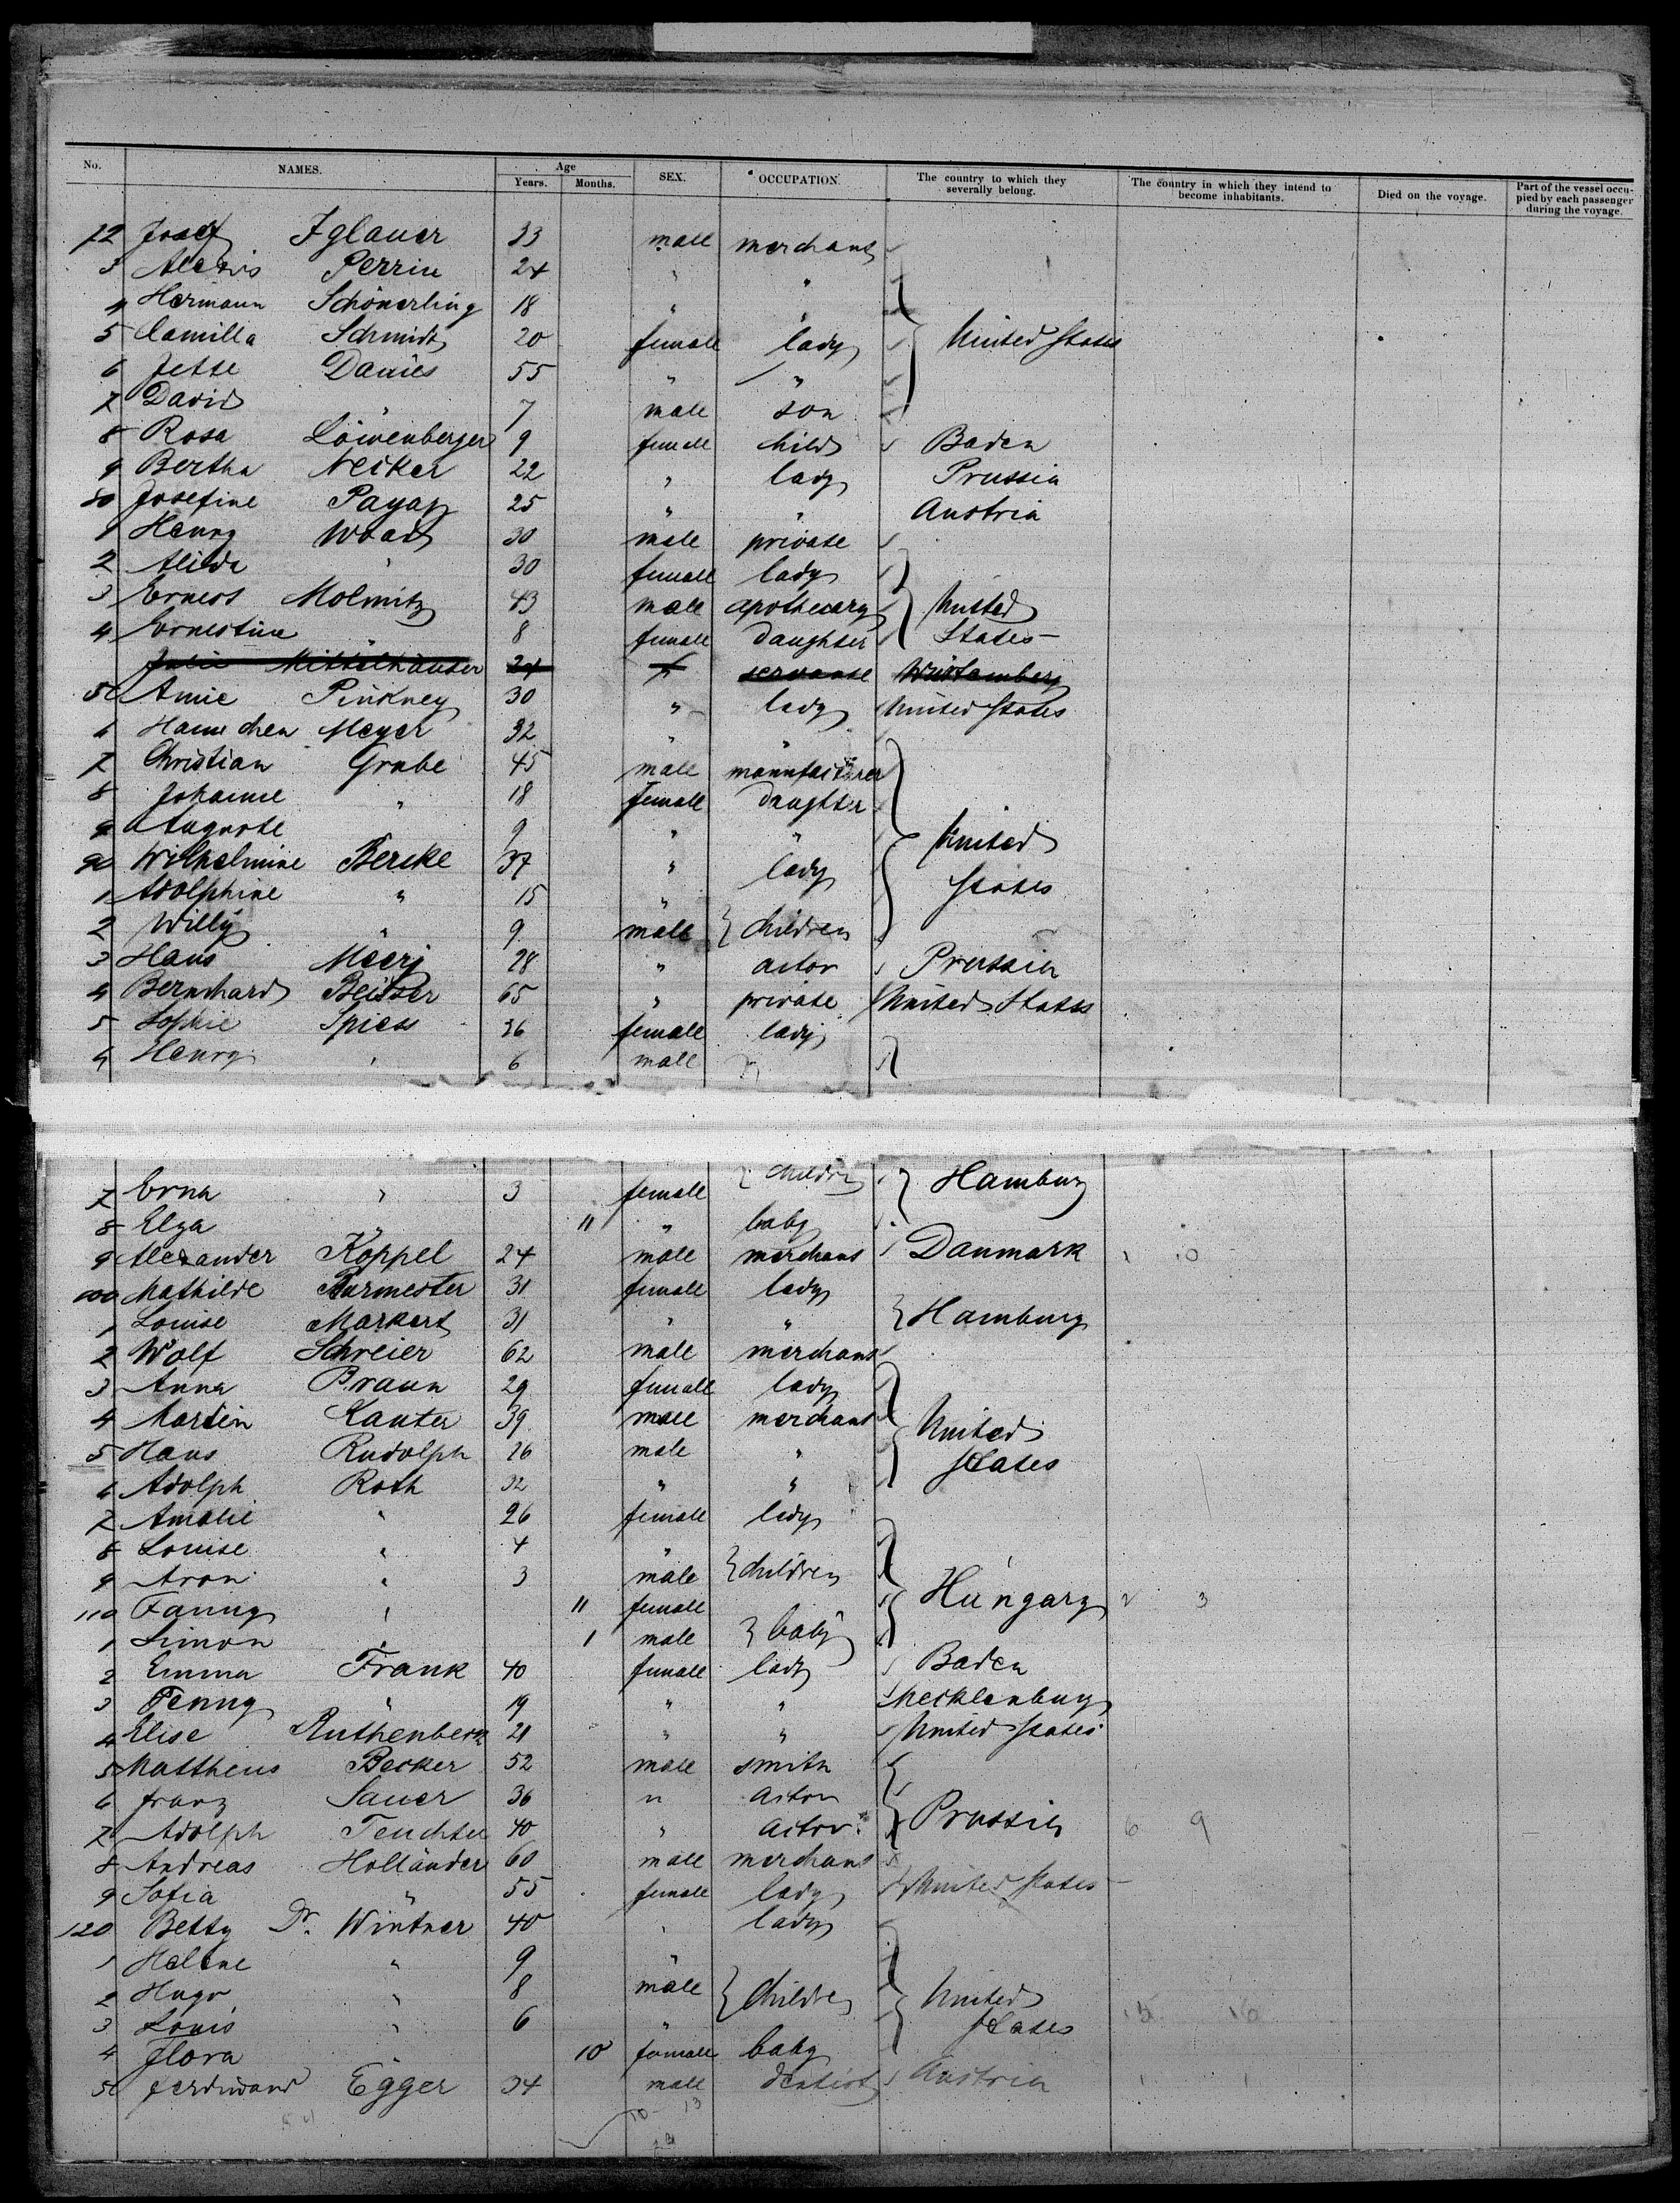 No. NAMES. Age Years. Months. SEX. OCCUPATION. The country to which they severally belong. The country in which they intend to become inhabitants. Died on the voyage. Part of the vessel occupied by each passenger during the voyage.
72 Josef Iglauer 33 male merchant
3 Alexis Perrin 24 " "
4 Hermann Schönerling 18 " "
5 Camilla Schmidt 20 female lady United States
6 Jette Danies 55 " "
7 David " 7 male son
8 Rosa Löwenberger 9 female child Baden
9 Bertha Necker 22 " lady Prussia
80 Josefine 25 " " Austria
1 Henry Wood 30 male private
2 Alida " 30 female lady
3 Ernest Molmitz 43 male apothecary United
4 Ernestine " 8 female daughter States
Julie Mittelhäuser 24 f servant Würtemberg
5 Amie Pinkney 30 " lady United States
6 Hannchen Meyer 32 " "
7 Christian Grabe 45 male manufacturer
8 Johanne " 18 female daughter
9 Auguste 9 " " United
90 Wilhelmine Bercke 37 " lady
1 Adolphine " 15 " States
2 Willy " 9 male children
3 Hans Meerj 28 " actor Prussia
4 Bernhard 65 " private United States
5 Sophie Spiess 36 female lady
6 Henry " 6 male
7 Erna " 3 female children Hamburg
8 Elza " 11 " baby
9 Alexander Koppel 24 male merchant Danmark 1 0
100 Mathilde Burmester 31 female lady
1 Louise Markert 31 " " Hamburg
2 Wolf Schreier 62 male merchant
3 Anna Braun 29 female lady
4 Martin Kanter 39 male merchant United
5 Hans Rudolph 26 male " States
6 Adolph Roth 32 " "
7 Amalie " 26 female lady
8 Louise " 4 "
9 Aron " 3 male children
110 Fanny " 11 female Hungary 2 3
1 Simon " 1 male baby
2 Emma Frank 40 female lady Baden
3 Jenny " 19 " " Mecklenburg
4 Elise Ruthenberg 21 " " United States
5 Mattheus Becker 52 male smith
6 Franz Sauer 36 " actor
7 Adolph 40 " actor Prussia 6 9
8 Andreas Holländer 60 male merchant
9 Sofia " 55 female lady United States
120 Betty Dr. Wintner 40 " lady
1 Helene " 9 "
2 Hugo " 8 male children United 15 16
3 Louis " 6 " States
4 Flora " 10 female baby
5 Ferdinand Egger 34 male dentist Austria 1 1
10 13